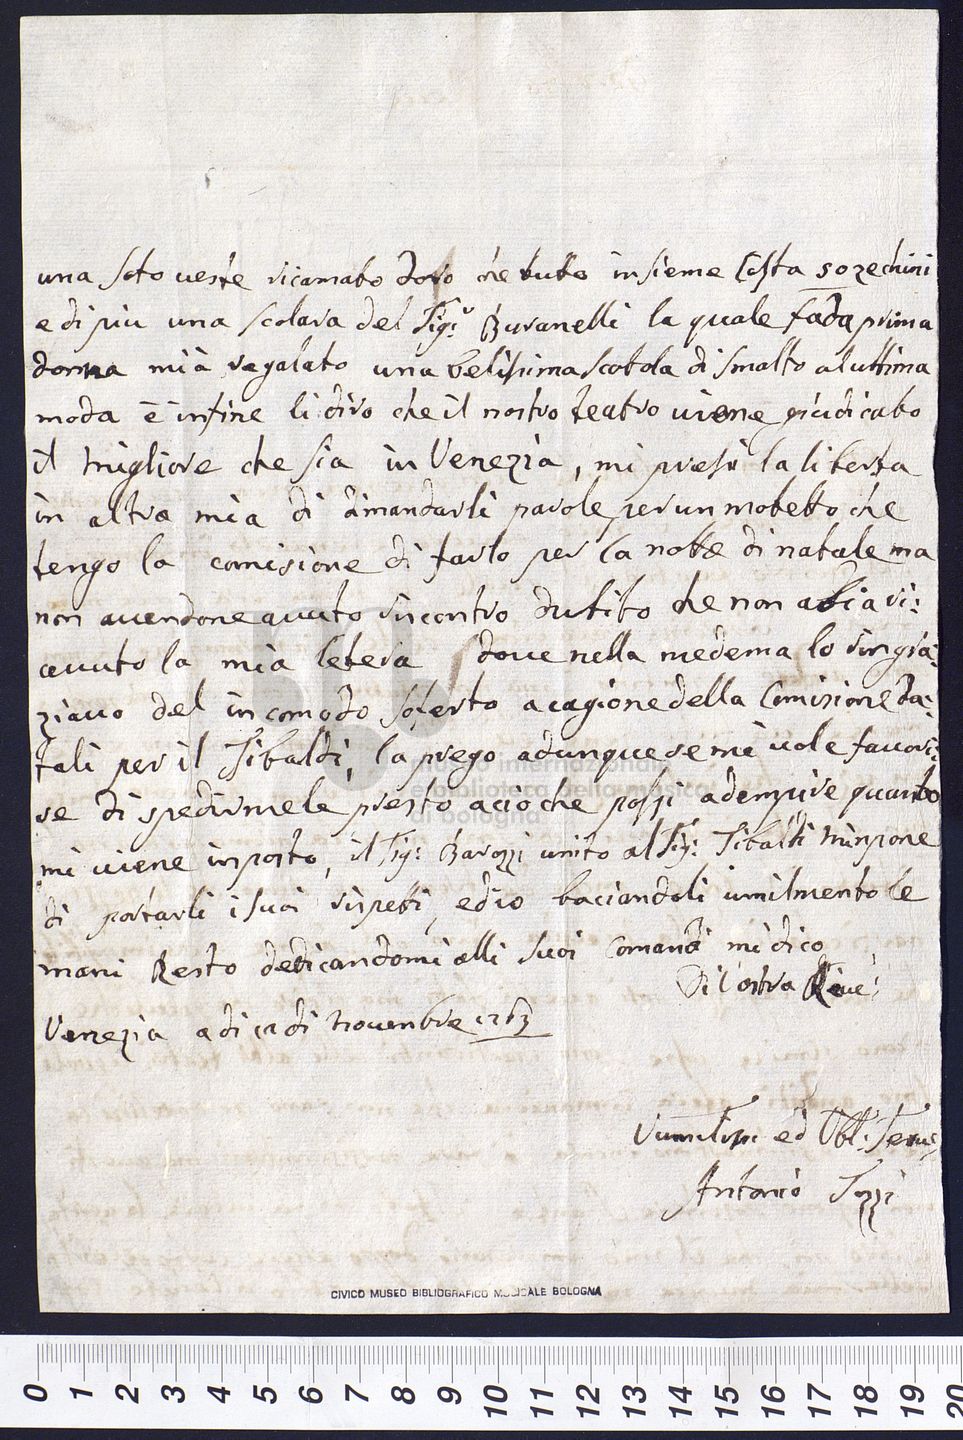 una soto veste ricamato doro che tutto insieme Costa 50 zechini
e di piu una scolara del Sig:r Buranelli la quale fa da prima
donna mi à regalato una belisima scatola di smalto al ultima
moda è infine li dirò che il nostro teatro viene giudicato
il migliore che sia in Venezia, mi presi la liberta
in altra mia di dimandarli parole per un motetto che
tengo la comisione di farlo per la notte di natale ma
non avendone avuto rincontro dubito che non abia ri:
cevuto la mia letera dove nella medema lo ringra:
ziavo del incomodo soferto a cagione della Comisione da:
tali per il Tibaldi, la prego adunque se mi vole favori:
re di spedirmele presto acioche possi adempire quanto
mi viene imposto, il Sig: Barozzi unito al Sig: Tibaldi m'inpone
di portarli i suoi rispetti, ed io baciandoli umilmente le
mani Resto dedicandomi alli suoi Comandi mi dico
Di Vostra Reve:
Venezia a di 12 di novembre 1763
Vumiliss: ed Obl: Serve
Antonio Tozzi
museo internazionale
e biblioteca della musica
di bologna
CIVICO MUSEO BIBLIOGRAFICO MUSICALE BOLOGNA
0 1 2 3 4 5 6 7 8 9 10 11 12 13 14 15 16 17 18 19 20